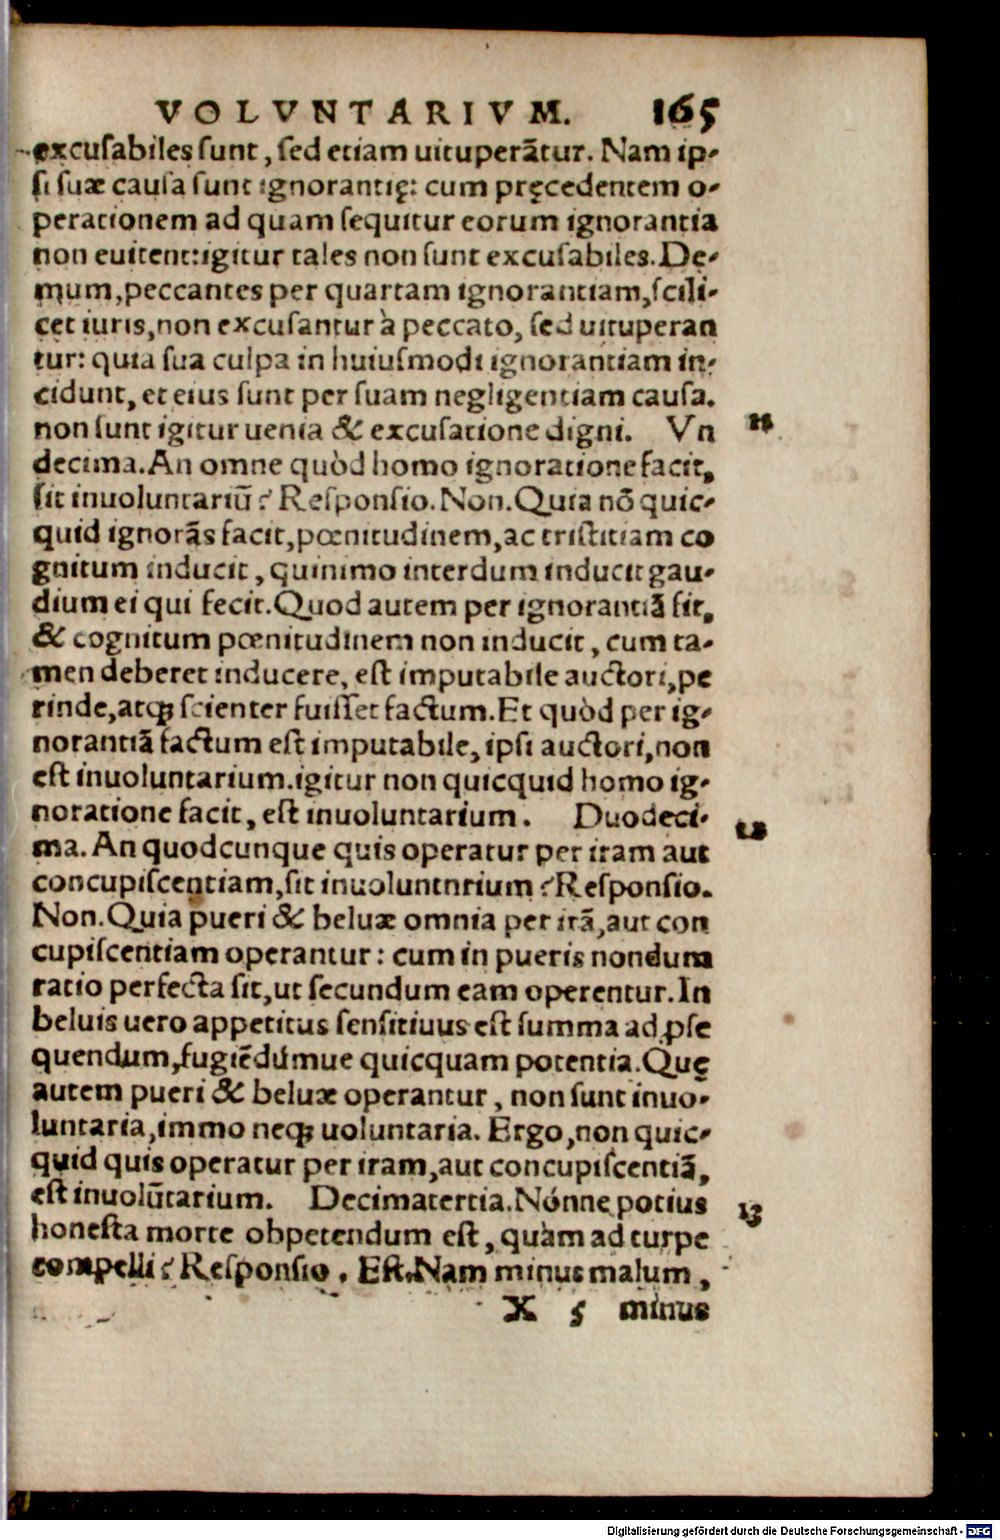 VOLVNTARIVM. 165
excuſabiles ſunt, ſed etiam uituperãtur. Nam ip-
ſi ſuæ cauſa ſunt ignorantię: cum pręcedentem o-
perationem ad quam ſequitur eorum ignorantia
non euitent:igitur tales non ſunt excuſabiles. De-
mum, peccantes per quartam ignorantiam, ſcili-
cet iuris, non excuſantur à peccato, ſed uituperan
tur: quia ſua culpa in huiuſmodi ignorantiam in-
cidunt, et eius ſunt per ſuam negligentiam cauſa.
non ſunt igitur uenia & excuſatione digni. Vn 11
decima. An omne quòd homo ignoratione facit,
ſit inuoluntariũ? Reſponſio. Non. Quia nõ quic-
quid ignorãs facit, pœnitudinem, ac triſtitiam co
gnitum inducit, quinimo interdum inducit gau-
dium ei qui fecit. Quod autem per ignorantiã fit,
& cognitum pœnitudinem non inducit, cum ta-
men deberet inducere, eſt imputabile auctori, pe
rinde, atqꝫ ſcienter fuiſſet factum. Et quòd per ig-
norantiã factum eſt imputabile, ipſi auctori, non
eſt inuoluntarium. igitur non quicquid homo ig-
noratione facit, eſt inuoluntarium. Duodeci- 12
ma. An quodcunque quis operatur per iram aut
concupiſcentiam, ſit inuoluntnrium? Reſponſio.
Non. Quia pueri & beluæ omnia per irã, aut con
cupiſcentiam operantur: cum in pueris nondum
ratio perfecta ſit, ut ſecundum eam operentur. In
beluis uero appetitus ſenſitiuus eſt ſumma ad ꝓſe
quendum, fugiẽdúmue quicquam potentia. Quę
autem pueri & beluæ operantur, non ſunt inuo-
luntaria, immo neqꝫ uoluntaria. Ergo, non quic-
quid quis operatur per iram, aut concupiſcentiã,
eſt inuolũtarium. Decimatertia. Nónne potius 13
honeſta morte obpetendum eſt, quàm ad turpe
compelli? Reſponſio. Eſt. Nam minus malum,
X 5 minus
Digitalisierung gefördert durch die Deutsche Forschungsgemeinschaft - DFG